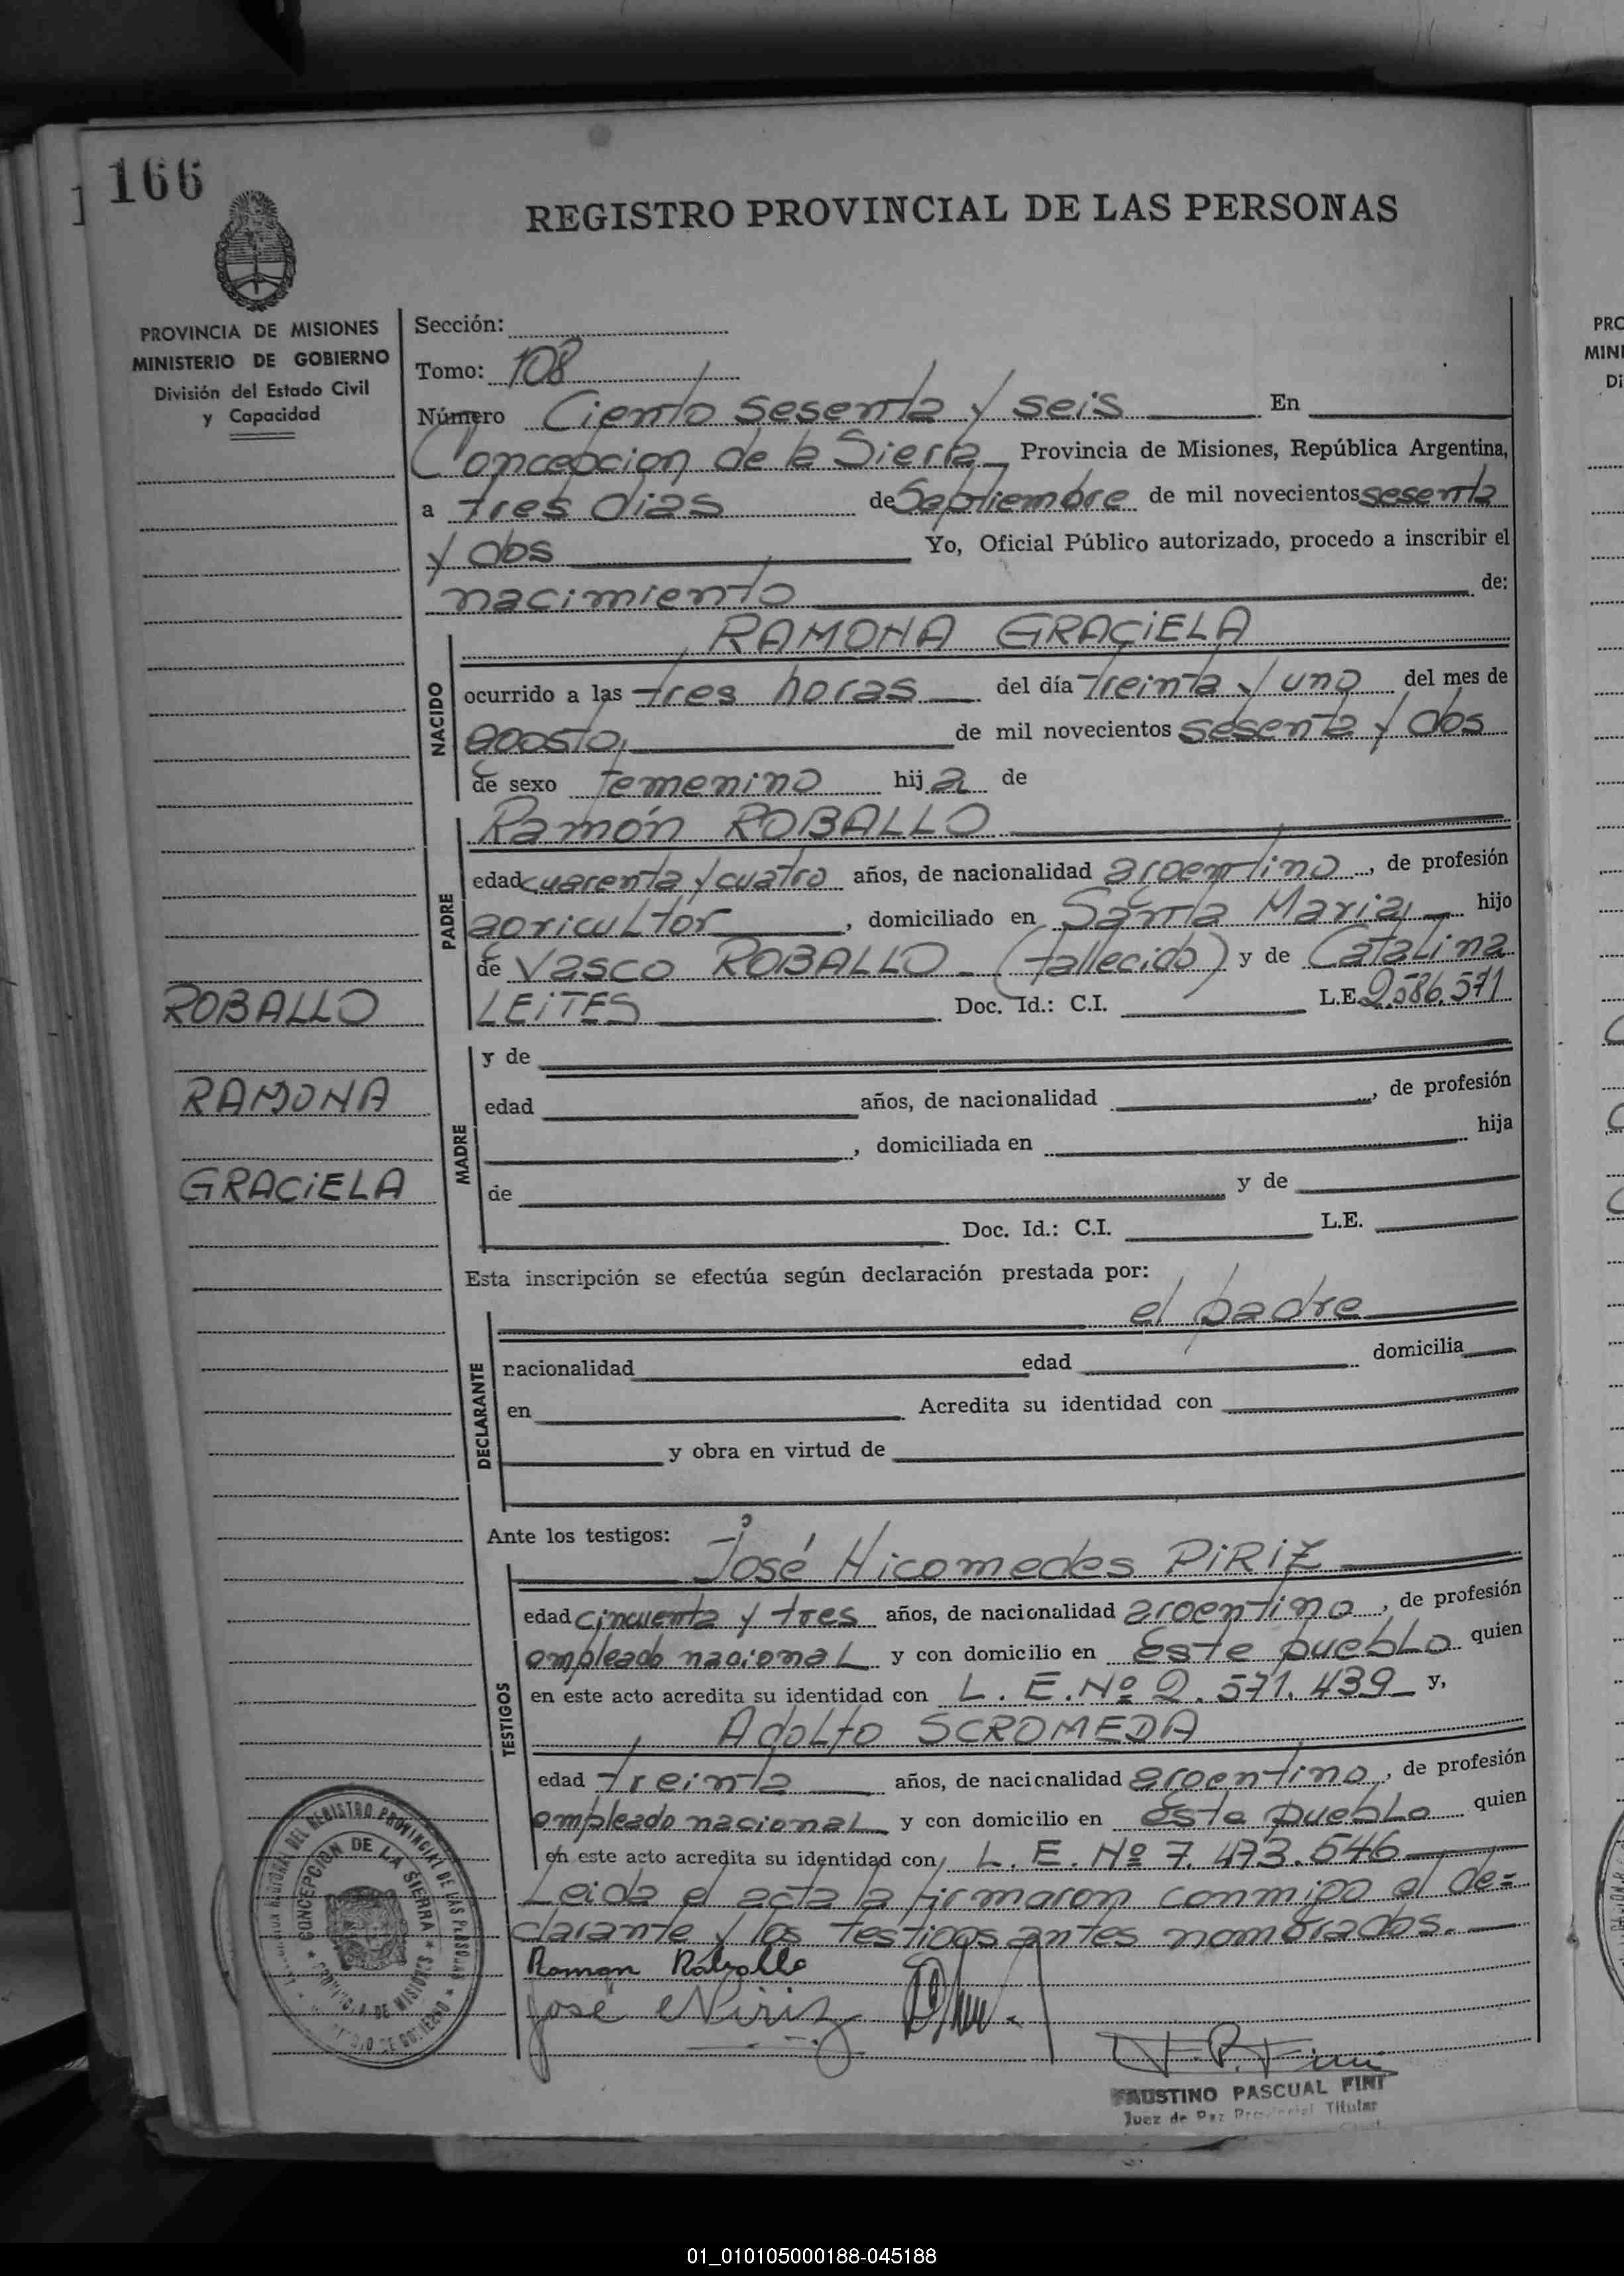 166
REGISTRO PROVINCIAL DE LAS PERSONAS
PROVINCIA DE MISIONES
MINISTERIO DE GOBIERNO
División del Estado Civil
y Capacidad
Sección:
Tomo: 108
Número Ciento sesenta y seis En
Concepcion de la Sierra Provincia de Misiones, República Argentina,
a tres dias de Septiembre de mil novecientos sesenta
y dos Yo, Oficial Público autorizado, procedo a inscribir el
nacimiento de:
RAMONA GRACiELA
NACIDO
ocurrido a las tres horas del día treinta y uno del mes de
agosto, de mil novecientos sesenta y dos
de sexo femenino hija de
PADRE
Ramón ROBALLO
edad cuarenta y cuatro años, de nacionalidad argentino, de profesión
agricultor, domiciliado en Santa Maria, hijo
de Vasco ROBALLO - (fallecido) y de Catalina
LEiTES Doc. Id.: C.I. L.E. 2.586.571
ROBALLO
RAMONA
GRACiELA
MADRE
y de
edad años, de nacionalidad, de profesión
, domiciliada en hija
de y de
Doc. Id.: C.I. L.E.
Esta inscripción se efectúa según declaración prestada por:
el padre
DECLARANTE
nacionalidad edad domicilia
en Acredita su identidad con
y obra en virtud de
Ante los testigos:
José Nicomedes PiRiZ
TESTIGOS
edad cincuenta y tres años, de nacionalidad argentino, de profesión
empleado nacional y con domicilio en este pueblo quien
en este acto acredita su identidad con L.E. Nº 2.571.439 y,
Adolfo SCROMEDA
edad treinta años, de nacionalidad argentino, de profesión
empleado nacional y con domicilio en este pueblo quien
en este acto acredita su identidad con L.E. Nº 7.473.546
Leida el acta la firmaron conmigo el de=
clarante y los testigos antes nombrados.
Ramon Roballo
José N Piriz
F. P. Fini
FAUSTINO PASCUAL FINI
Juez de Paz Provincial Titular
REGISTRO PROVINCIAL DE LAS PERSONAS
CONCEPCION DE LA SIERRA
PROVINCIA DE MISIONES
PRO
MINI
Di
01_010105000188-045188